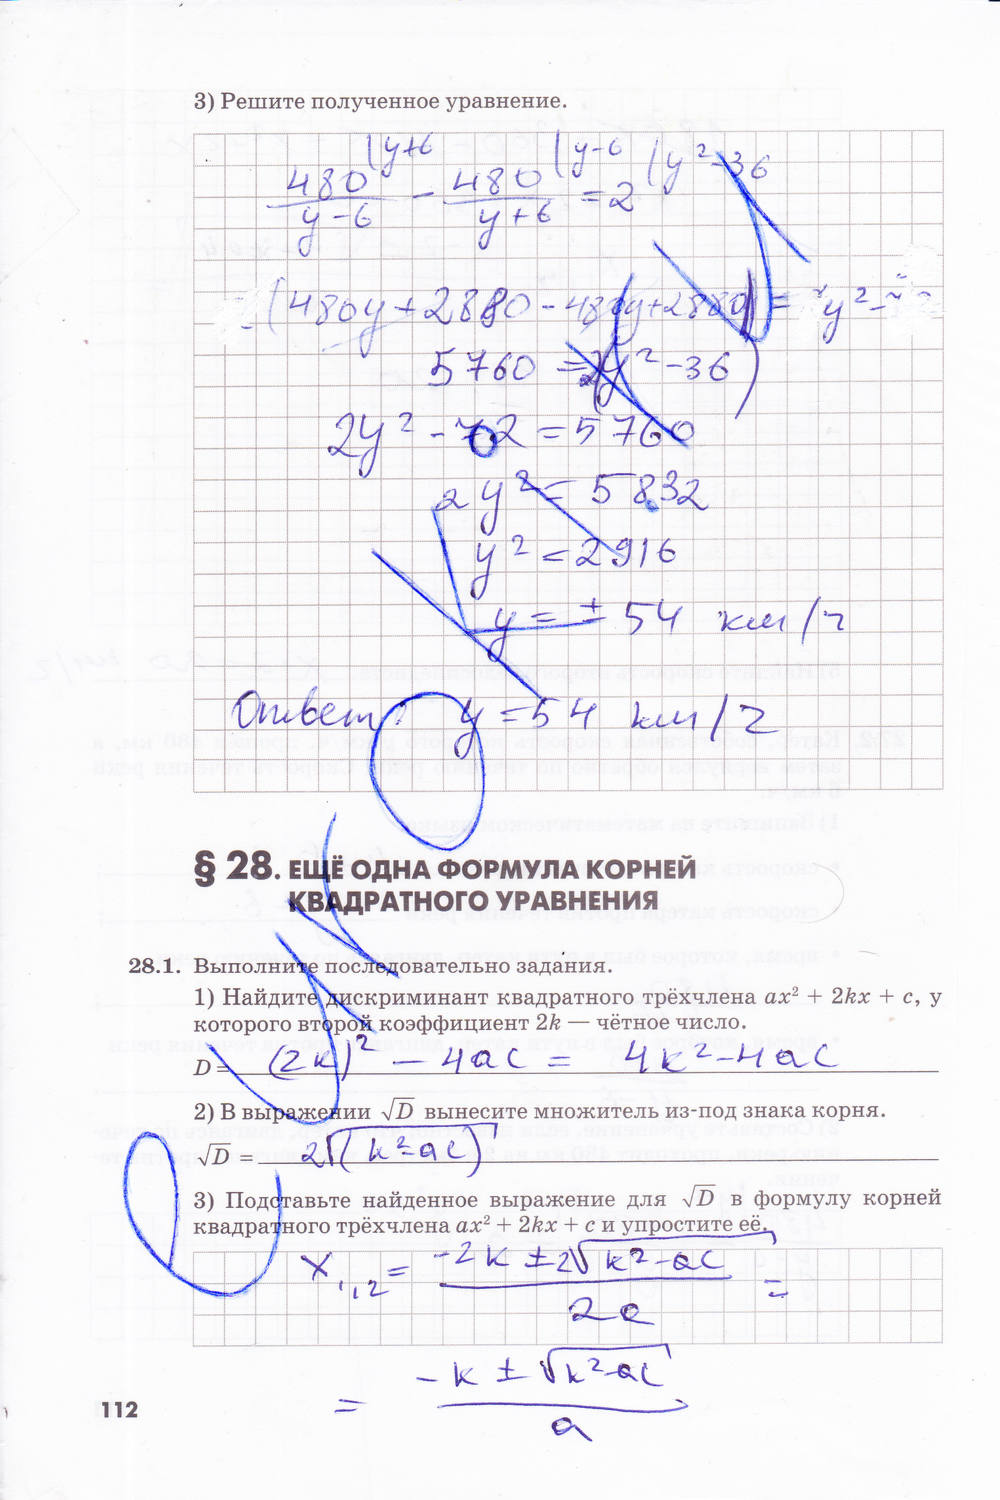 3) Решите полученное уравнение.
|y+6 |y-6 |y²-36
480/(y-6) - 480/(y+6) = 2
(480y+2880-480y+2880) = y²-
5760 = 2(y²-36)
2y²-72 = 5760
2y² = 5832
y² = 2916
y = ± 54 км/ч
Ответ: y = 54 км/ч
§ 28. ЕЩЁ ОДНА ФОРМУЛА КОРНЕЙ
КВАДРАТНОГО УРАВНЕНИЯ
28.1. Выполните последовательно задания.
1) Найдите дискриминант квадратного трёхчлена ax² + 2kx + c, у
которого второй коэффициент 2k — чётное число.
D = (2k)² - 4ac = 4k²-4ac
2) В выражении √D вынесите множитель из-под знака корня.
√D = 2√(k²-ac)
3) Подставьте найденное выражение для √D в формулу корней
квадратного трёхчлена ax² + 2kx + c и упростите её.
x₁,₂ = (-2k ± 2√(k²-ac))/2a =
= (-k ± √(k²-ac))/a
112